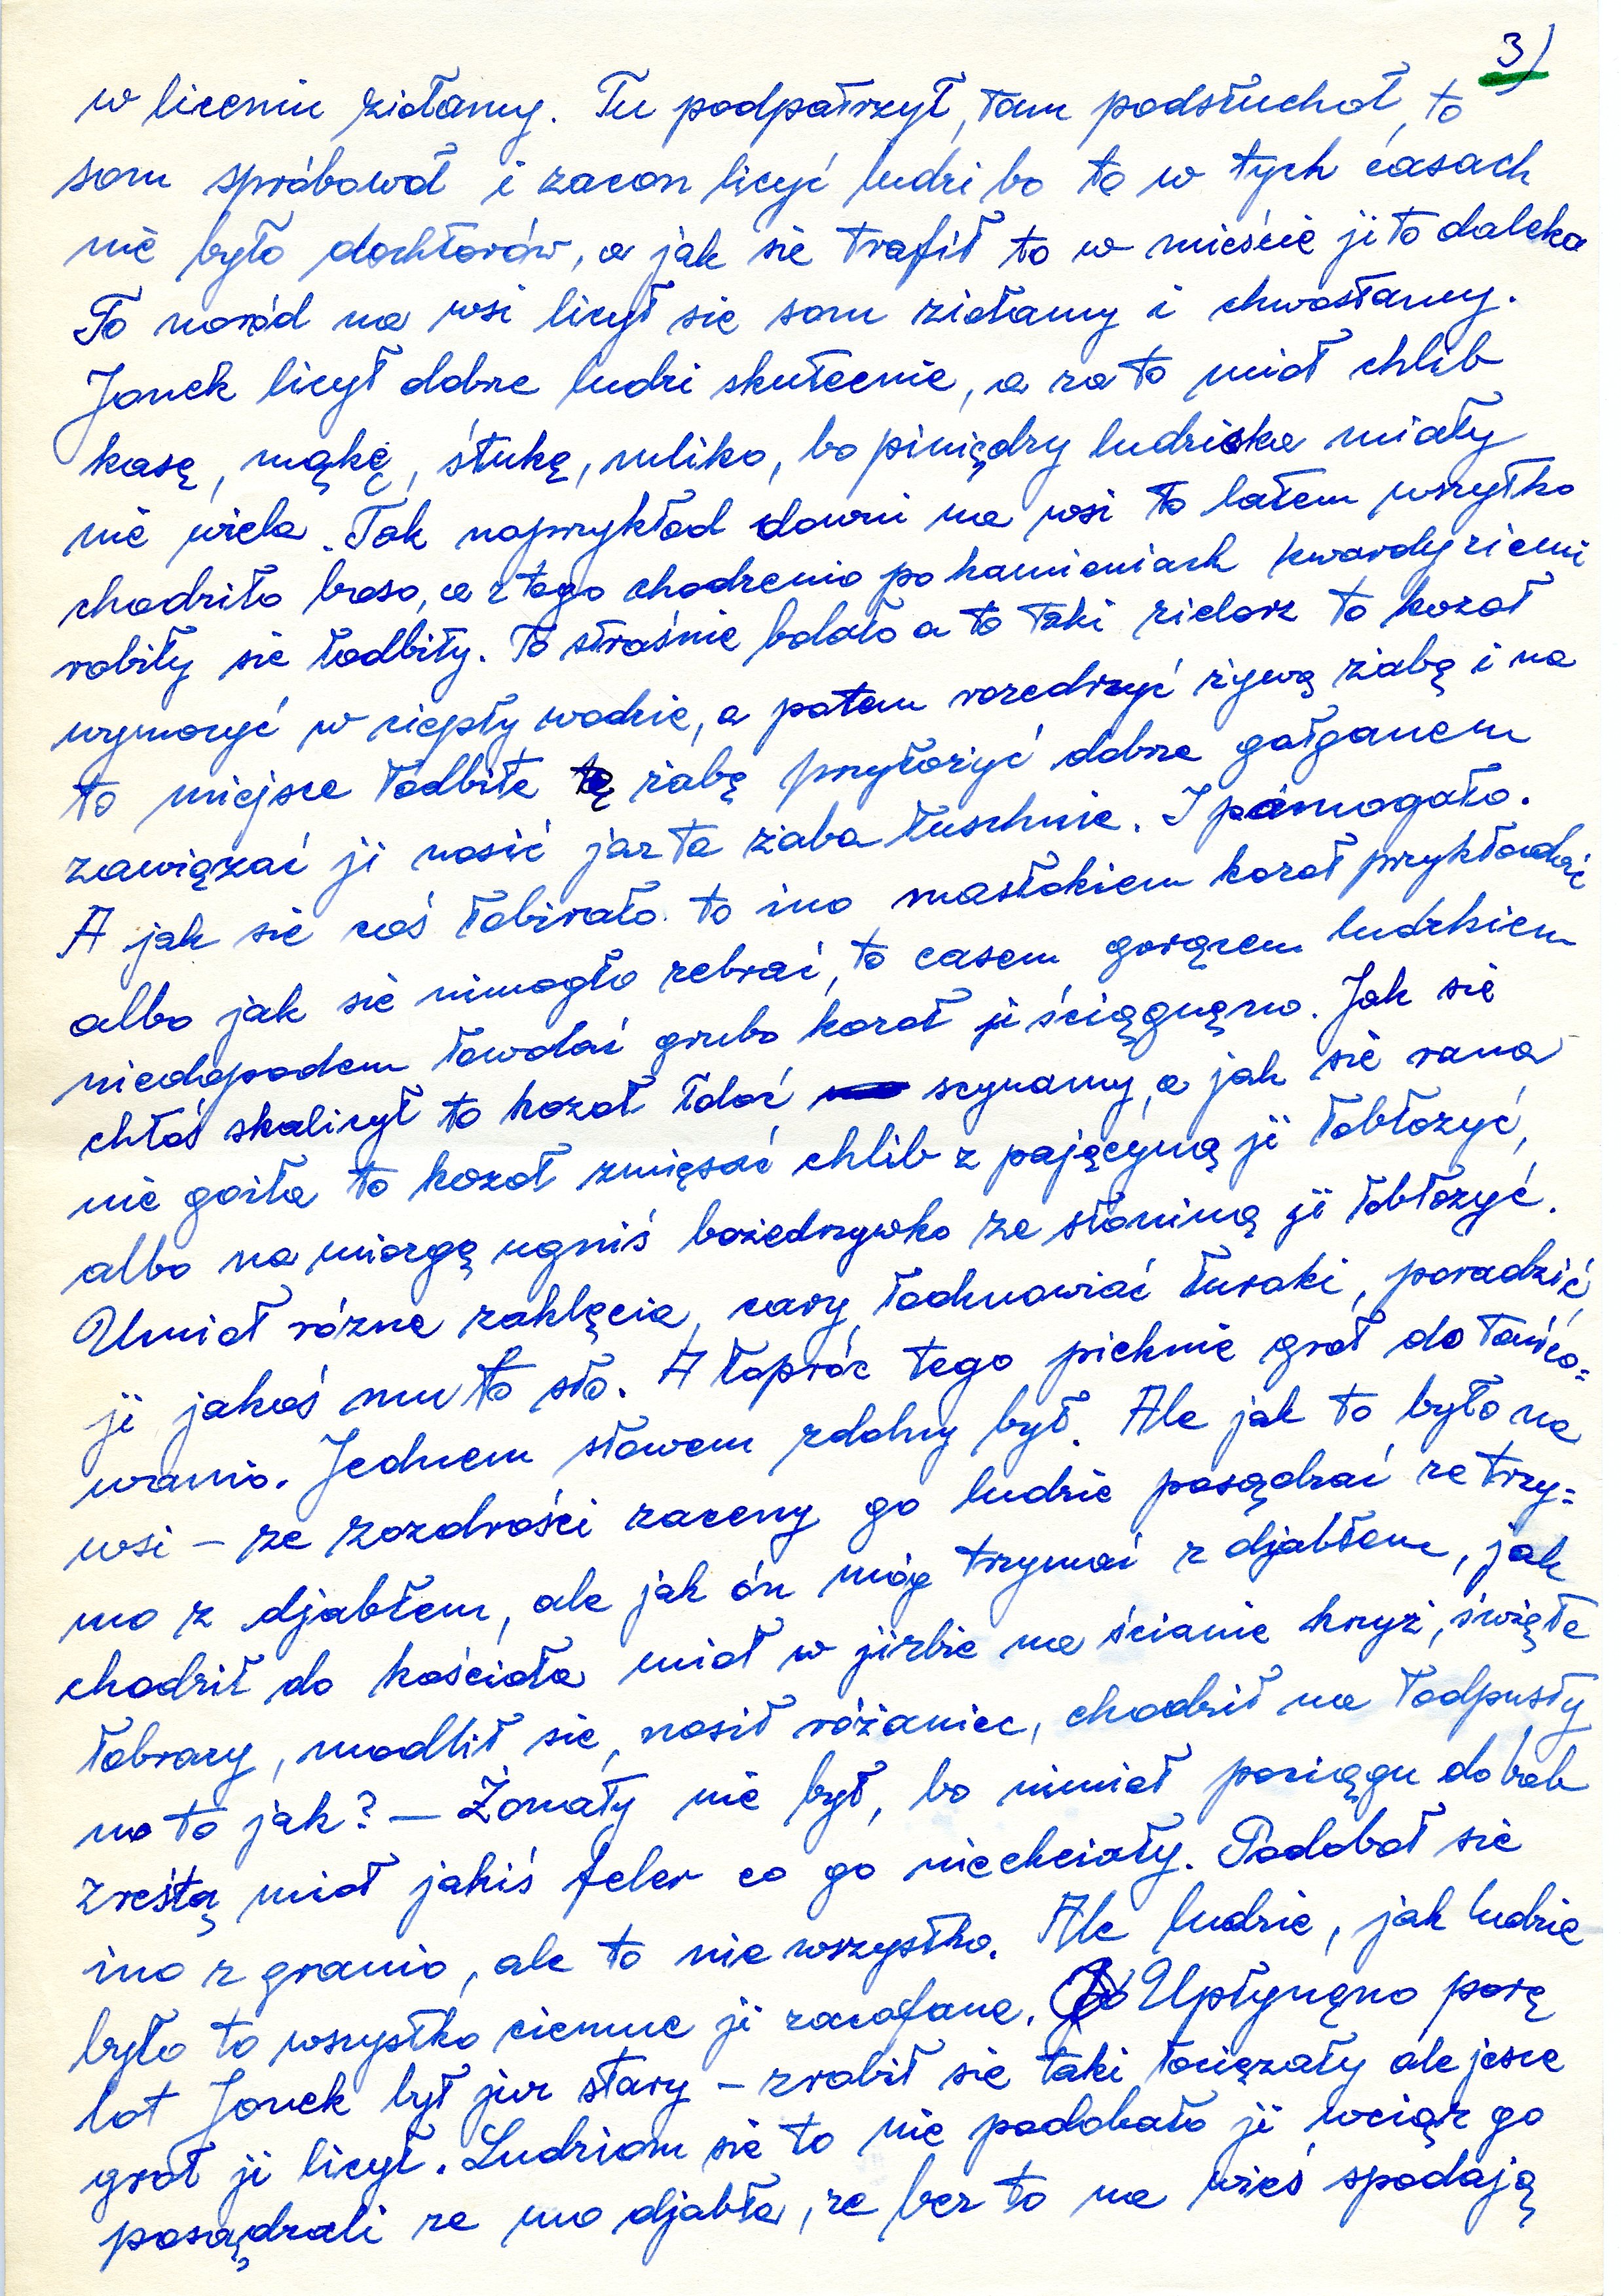 3)
w liceniu ziołamy. Tu podpatrzył, tam podsłuchoł, to
som spróbowoł i zacon licyć ludzi bo to w tych casach
nié było dochtorów, a jak sié trafił to w mieście ji to daleko
To noród na wsi licył sie som ziołamy i chwastamy.
Jonek licył dobrze ludzi skutecnie, a za to mioł chlib
kasę, mąkę, śtukę, mliko, bo piniędzy ludziska miały
nié wiela. Tak naprzykłod downi na wsi to latem wszytko
chodziło boso, a z tego chodzenio po kamieniach kwardy ziemi
robiły sie łodbiły. To straśnie bolało a to taki zielorz to kozoł
wymocyć w ciepły wodzie, a potem rozedrzyć żywą żiabę i na
to miejsce łodbite tę żiabę przyłożyć dobrze gałganem
zawiązać ji nosić jaz ta żaba łuschnie. I pómogało.
A jak sie coś łobirało to ino masłokiem kozoł przykłodać
albo jak sié nimogło zebrać, to casem gorącem ludzkiem
niedopadem łowdać grubo kozoł ji ściągnęno. Jak się
chtoś skalicył to kozoł łdać scynamy, a jak sie rana
nié goiła to kozoł zmięsać chlib z pajęcyną ji łobłozyć,
albo na miazgę ugniś bożedrzywko ze słoniną ji łobłozyć.
Umioł rózne zaklęcia, cary, łodmawiać łuroki, poradzić,
ji jakoś mu to sło. A łopróc tego pieknie groł do tańco=
wanio. Jednem słowem zdolny był. Ale jak to było na
wsi – ze zozdrości zaceny go ludzie posądzać ze trzy=
mo z djabłem, ale jak ón móg trzymać z djabłem, jak
chodził do kościoła mioł w jizbie na ścianie krzyż, święte
łobrazy, modlił sie, nosił różaniec, chodził na łodpusty
no to jak? – Żonaty nié był, bo nimioł pociągu do bab
zreśtą mioł jakiś feler co go niechciały. Podoboł sie
ino z granio, ale to nie wszystko. Ale ludzie, jak ludzie
było to wszystko ciemne ji zacofane. Upłynęno porę
lot Jonek był juz stary – zrobił sie taki łociężały ale jesce
groł ji licył. Ludziom sie to nié podobało ji wciąż go
posądzali ze mo djabła, ze bez to na wieś spadają